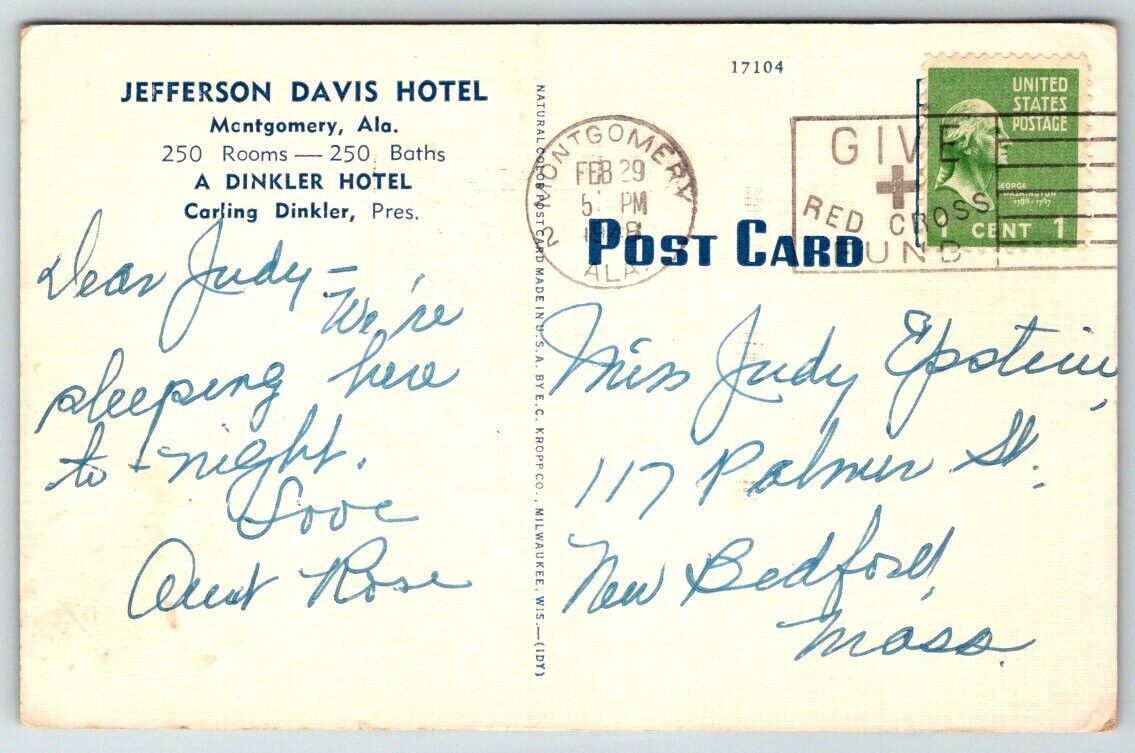 JEFFERSON DAVIS HOTEL
Montgomery, Ala.
250 Rooms — 250 Baths
A DINKLER HOTEL
Carling Dinkler, Pres.
Dear Judy –
We're
sleeping here
to-night.
Love
Aunt Rose
NATURAL COLOR POST CARD MADE IN U.S.A. BY E.C. KROPP CO., MILWAUKEE, WIS.—(IDY)
17104
MONTGOMERY
FEB 29
5 PM
1948
ALA.
2
GIVE
RED CROSS
FUND
UNITED
STATES
POSTAGE
GEORGE
WASHINGTON
1789-1797
1 CENT 1
POST CARD
Miss Judy Epstein,
117 Palmer St.
New Bedford,
Mass.